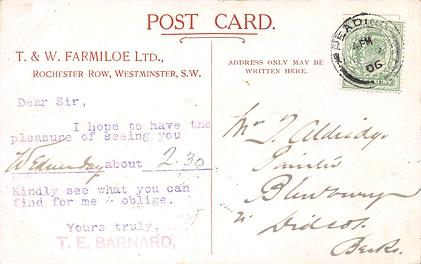 POST CARD.
T. & W. FARMILOE LTD.,
ROCHESTER ROW, WESTMINSTER, S.W.
ADDRESS ONLY MAY BE
WRITTEN HERE.
READING
PM
06
Dear Sir,
I hope to have the
pleasure of seeing you
Wednesday about 2.30
Kindly see what you can
find for me & oblige.
Yours truly,
T. E. BARNARD,
Mr T. Aldridge
Painter
Blewbury
Didcot
Berks.